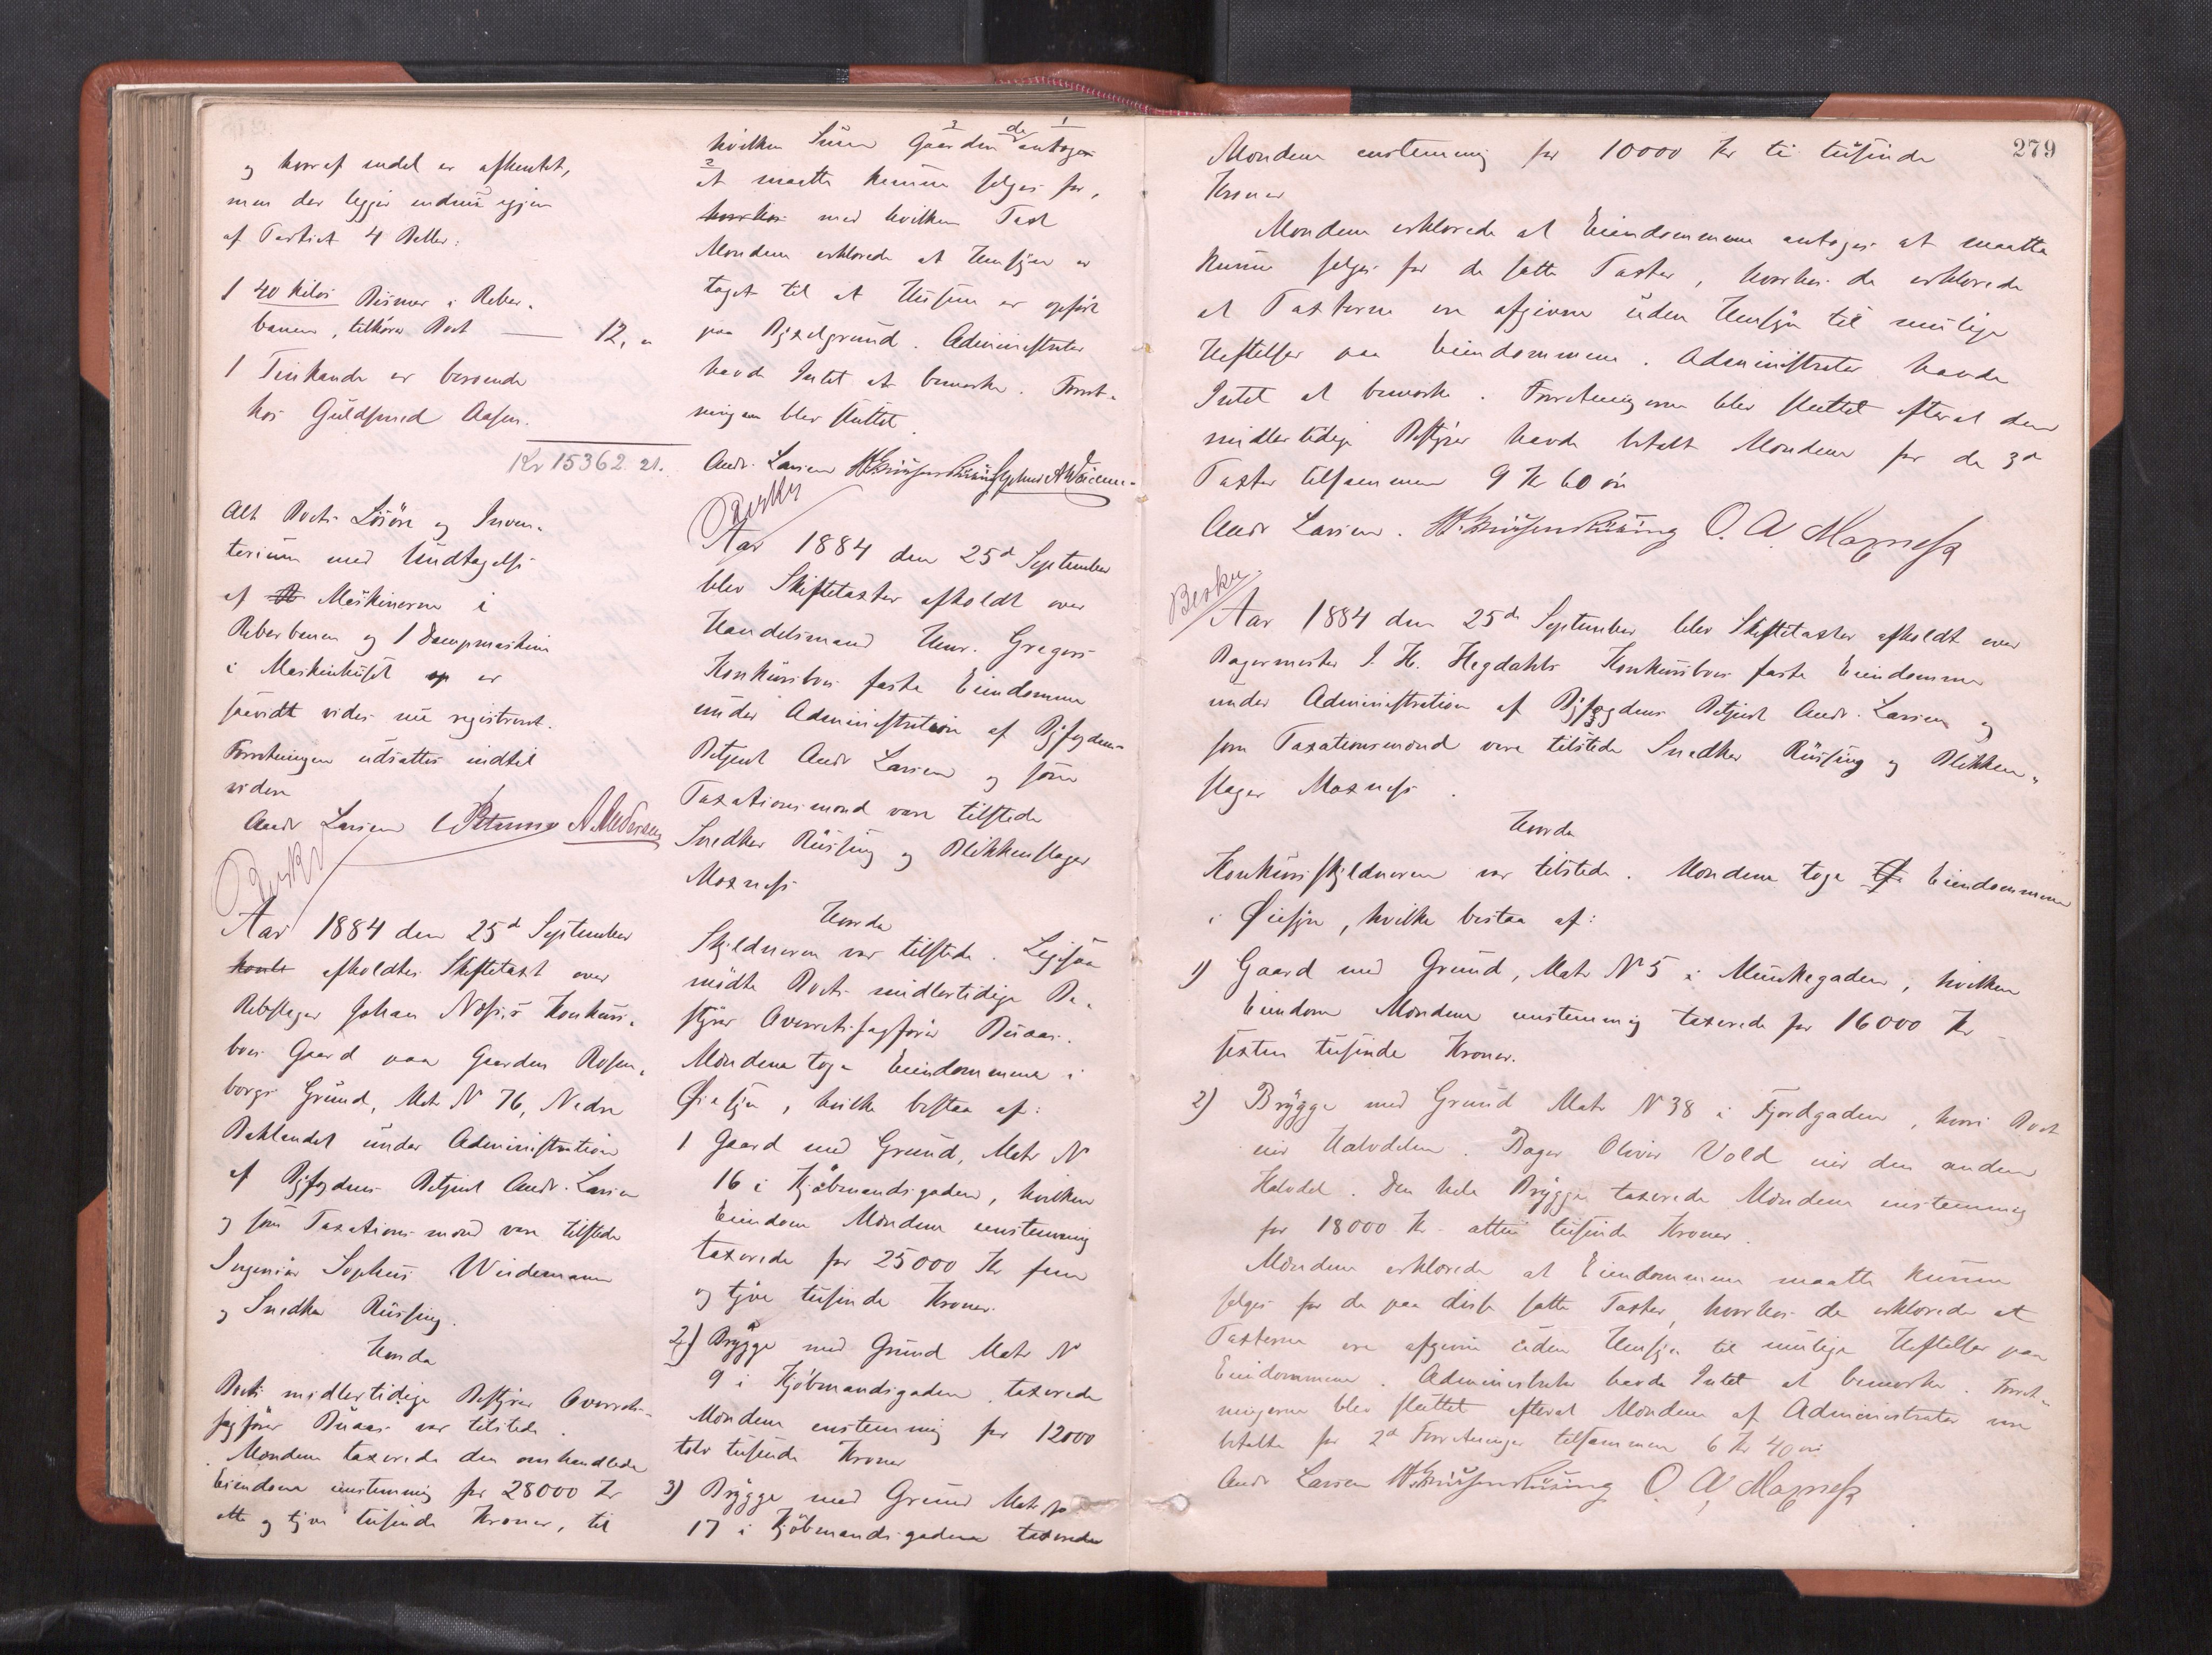 og hvoraf endel er afhentet,
men der ligger endnu igjen
af Partiet 4 Baller.
1 40 Kilos Bismer i Reber-
banen, tilhører Boet — 12, "
1 Tinkande er beroende
hos Guldsmed Aasen.
Kr 15362. 21.
Alt Boets Løsøre og Inven-
tarium med Undtagelse
af Maskinerne i
Reberbanen og 1 Dampmaskine
i Maskinhuset er
saavidt vides nu registreret.
Forretningen udsattes indtil
videre
Andr Larsen Petersen A. Andersen
Beskr
Aar 1884 den 25d September
afholdtes Skiftetaxt over
Rebslager Johan Næss's Konkurs-
boes Gaard paa Gaarden Rosen-
borgs Grund, Matr N 76, Nedre
Baklandet under Administration
af Byfogdens Betjent Andr. Larsen
og som Taxationsmænd vare tilstede
Ingeniør Sophus Weidemann
og Snedker Rüssing.
Hvorda
Boets midlertidige Bestyrer Overrets-
sagfører Buaas var tilstede.
Mændene taxerede den omhandlede
Eiendom enstemmig for 28000 Kr
otte og tyve tusinde Kroner, til
hvilken Sum Gaarden de antager
at maatte kunne sælges for,
hvorhos med hvilken Taxt
Mændene erklærede at Hensyn er
taget til at Husene er opført
paa Bygselgrund. Administrator
havde Intet at bemærke. Forret-
ningen blev sluttet.
Andr. Larsen Rüsing Sophus A Weidemann
Beskr
Aar 1884 den 25d September
blev Skiftetaxter afholdt over
Handelsmand Henr. Gregers
Konkursboes faste Eiendomme
under Administration af Byfogdens
Betjent Andr Larsen og som
Taxationsmænd vare tilstede
Snedker Rüssing og Blikkenslager
Moxness
Hvorda
Skyldneren var tilstede. Ligesaa
mødte Boets midlertidige Be-
styrer Overretssagfører Buaas.
Mændene toge Eiendommene i
Øiesyn, hvilke bestaa af:
1 Gaard med Grund, Matr N
16 i Kjøbmandsgaden, hvilken
Eiendom Mændene enstemmig
taxerede for 25000 Kr fem
og tyve tusinde Kroner.
2) Brygge med Grund Matr N
9 i Kjøbmandsgaden taxerede
Mændene enstemmig for 12000
tolv tusinde Kroner
3) Brygge med Grund Matr N
17 i Kjøbmandsgaden taxerede
279
Mændene enstemmig for 10000 Kr ti tusinde
Kroner
Mændene erklærede at Eiendommene antages at maatte
kunne sælges for de satte Taxter, hvorhos de erklærede
at Taxterne ere afgivne uden Hensyn til mulige
Heftelser paa Eiendommene. Administrator havde
Intet at bemærke. Forretningerne blev sluttet efterat den
midlertidige Bestyrer havde betalt Mændene for de 3de
Taxter tilsammen 9 Kr 60 øre
Andr Larsen. Rüsing O. A. Moxness
Beskr.
Aar 1884 den 25de September blev Skiftetaxter afholdt over
Bagermester J. H. Hegdahls Konkursboes faste Eiendomme
under Administration af Byfogdens Betjent Andr. Larsen og
som Taxationsmænd vare tilstede Snedker Rüssing og Blikken-
slager Moxness.
Hvorda
Konkursskyldneren var tilstede. Mændene toge Eiendommene
i Øiesyn, hvilke bestaa af:
1) Gaard med Grund, Matr N 5 i Munkegaden, hvilken
Eiendom Mændene enstemmig taxerede for 16000 Kr
sexten tusinde Kroner.
2) Brygge med Grund Matr N 38 i Fjordgaden, hvori Boet
eier Halvdelen. Bager Oliver Vold eier den anden
Halvdel. Den hele Brygge taxerede Mændene enstemmig
for 18000 Kr atten tusinde Kroner.
Mændene erklærede at Eiendommene maatte kunne
sælges for de paa disse satte Taxter, hvorhos de erklærede at
Taxterne ere afgivne uden Hensyn til mulige Heftelser paa
Eiendommene. Administrator havde Intet at bemærke. Forret-
ningerne blev sluttet efterat Mændene af Administrator vare
betalte for 2de Forretninger tilsammen 6 Kr 40 øre
Andr Larsen Rüsing O. A. Moxness